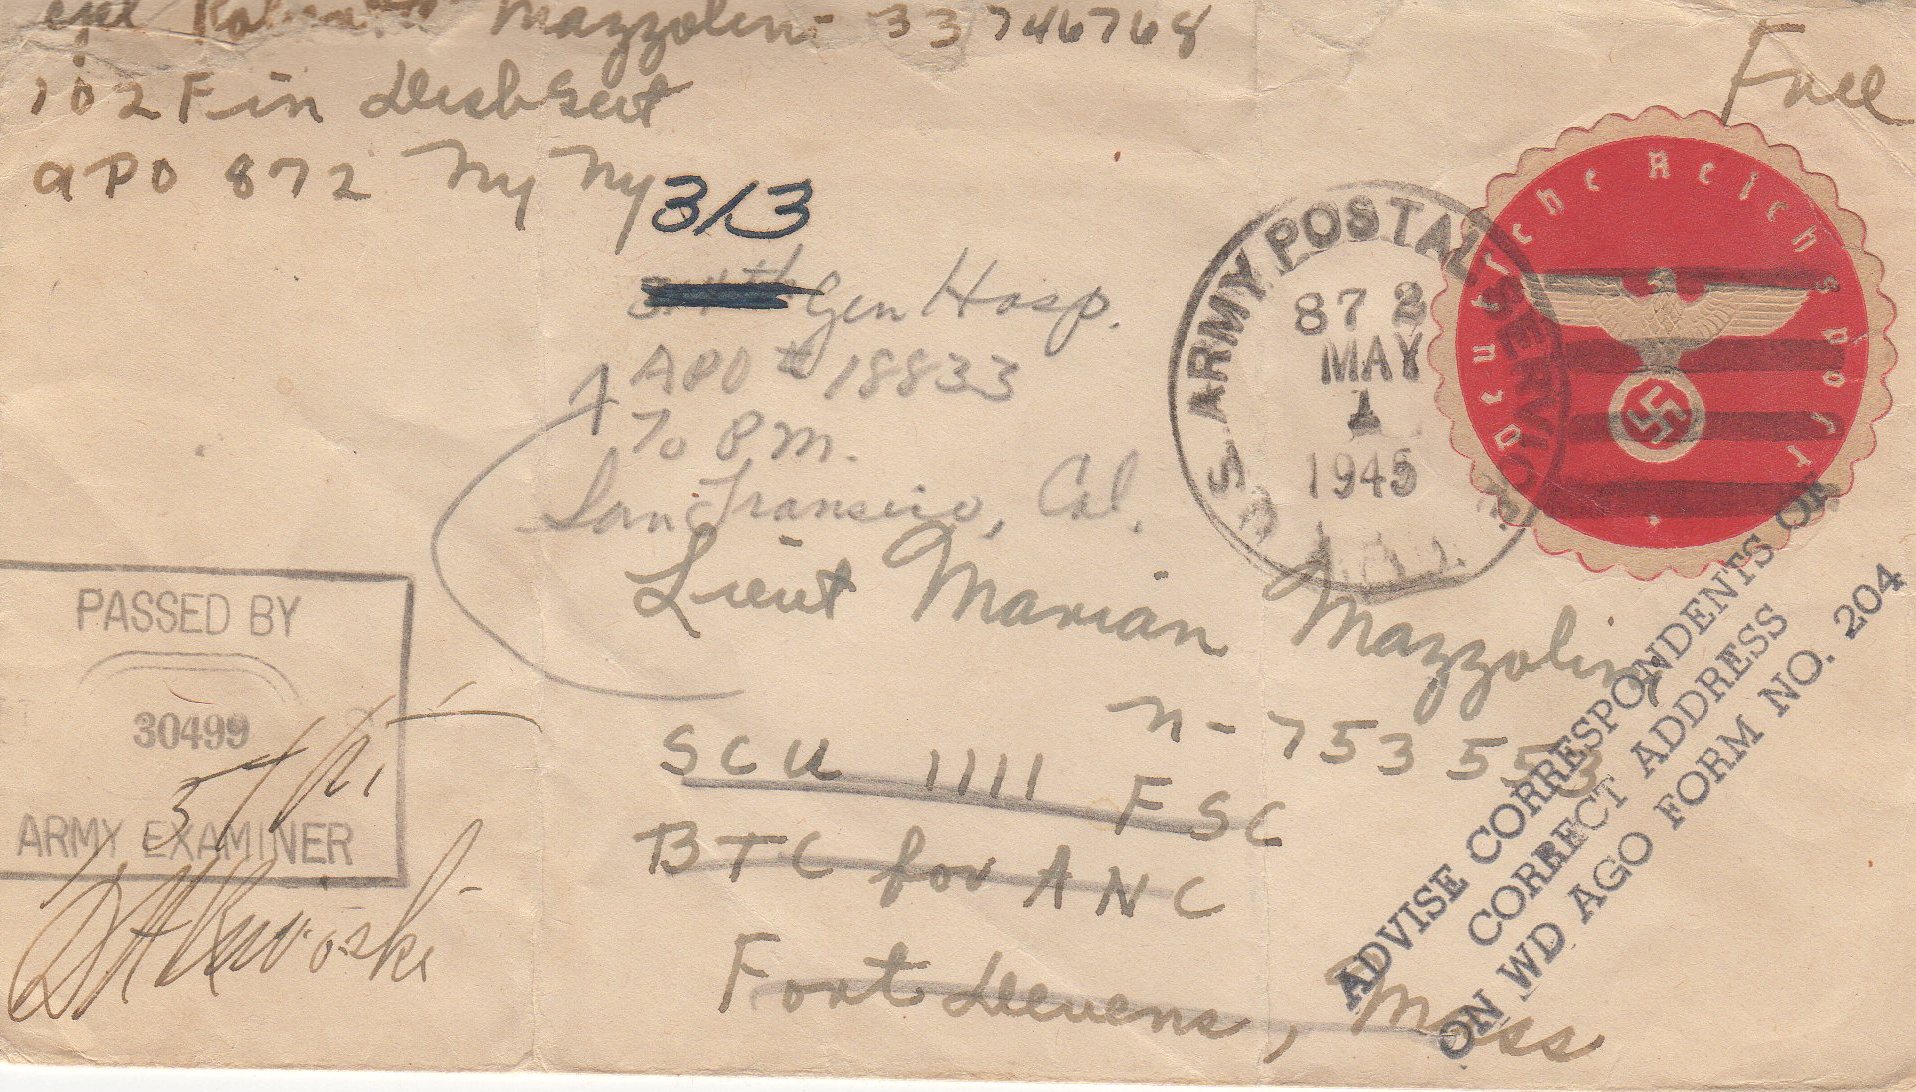 Cpl Mazzolini 33746768
102 Fin Disb Sect
APO 872 NY NY
Free
313
Gen Hosp.
APO # 18833
To P.M.
San Francisco, Cal.
Lieut Marian Mazzolini
N-753553
SCU 1111 FSC
BTC for ANC
Fort Devens, Mass
U.S. ARMY POSTAL SERVICE
872
MAY
1
1945
Deutsche Reichspost
PASSED BY
30499
ARMY EXAMINER
ADVISE CORRESPONDENTS OF
CORRECT ADDRESS
ON WD AGO FORM NO. 204